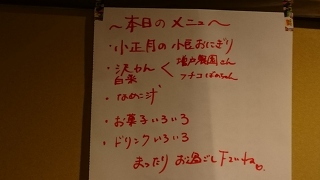 〜本日のメニュー〜
・小正月の小豆おにぎり
・沢わん く 増戸農園さん
白菜 フナコばぁちゃん
・なめこ汁
・お菓子いろいろ
・ドリンクいろいろ
まったりお過ごし下さいね。